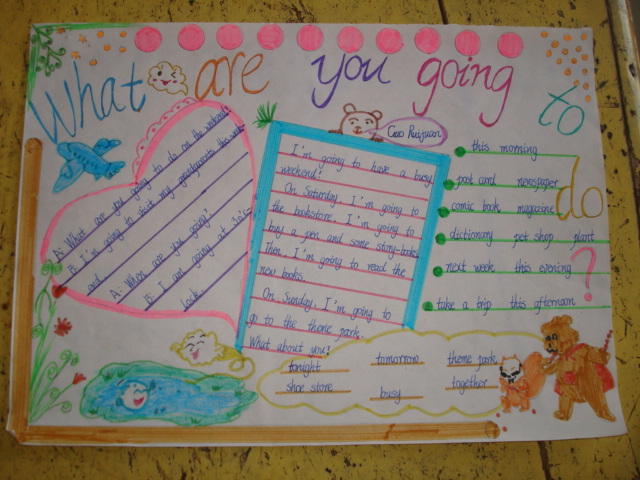 What are you going to do?
A: What are you going to do on the weekend?
B: I'm going to visit my grandparents this week-
end.
A: When are you going?
B: I am going at 3
o'clock.
Cao Ruijuan
I'm going to have a busy
weekend!
On Saturday, I'm going to
the bookstore. I'm going to
buy a pen and some story-book.
Then, I'm going to read the
new books.
On Sunday, I'm going to
go to the theme park.
What about you?
this morning
post card newspaper
comic book magazine
dictionary pet shop plant
next week this evening
take a trip this afternoon
tonight tomorrow theme park
shoe store busy together